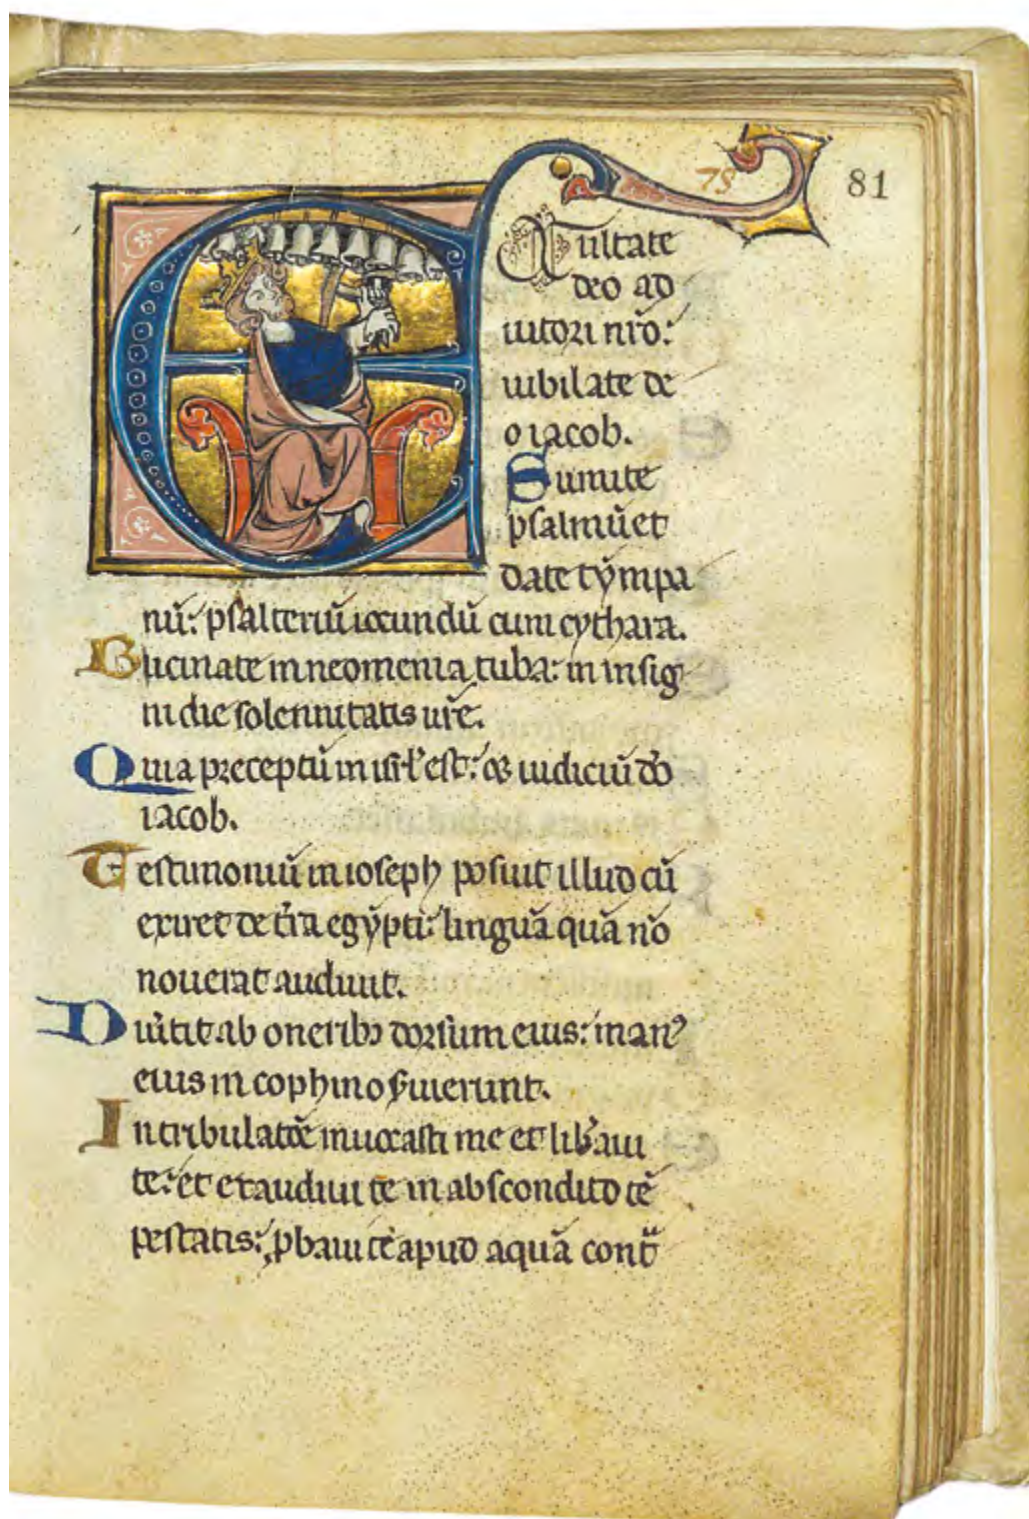 78
81
Exultate
deo ad
iutori nr̄o:
iubilate de
o iacob.
Sumite
psalmū et
date tẏmpa
nū: psalteriū iocundū cum cythara.
Bucinate in neomenia tuba: in insig
ni die solennitatis ur̄e.
Quia preceptū in isrl̓ est: & iudiciū dō
iacob.
Testimoniū in ioseph posuit illud cū
exiret de tr̄a egẏpti: linguā quā nō
nouerat audiuit.
Diu̓tit ab oneribꝫ dorsum eius: manꝰ
eius in cophino s̓uierunt.
In tribulatōe inuocasti me et lib̓aui
te: et exaudiui te in abscondito tē
pestatis: ꝓbaui te apud aquā cont̃